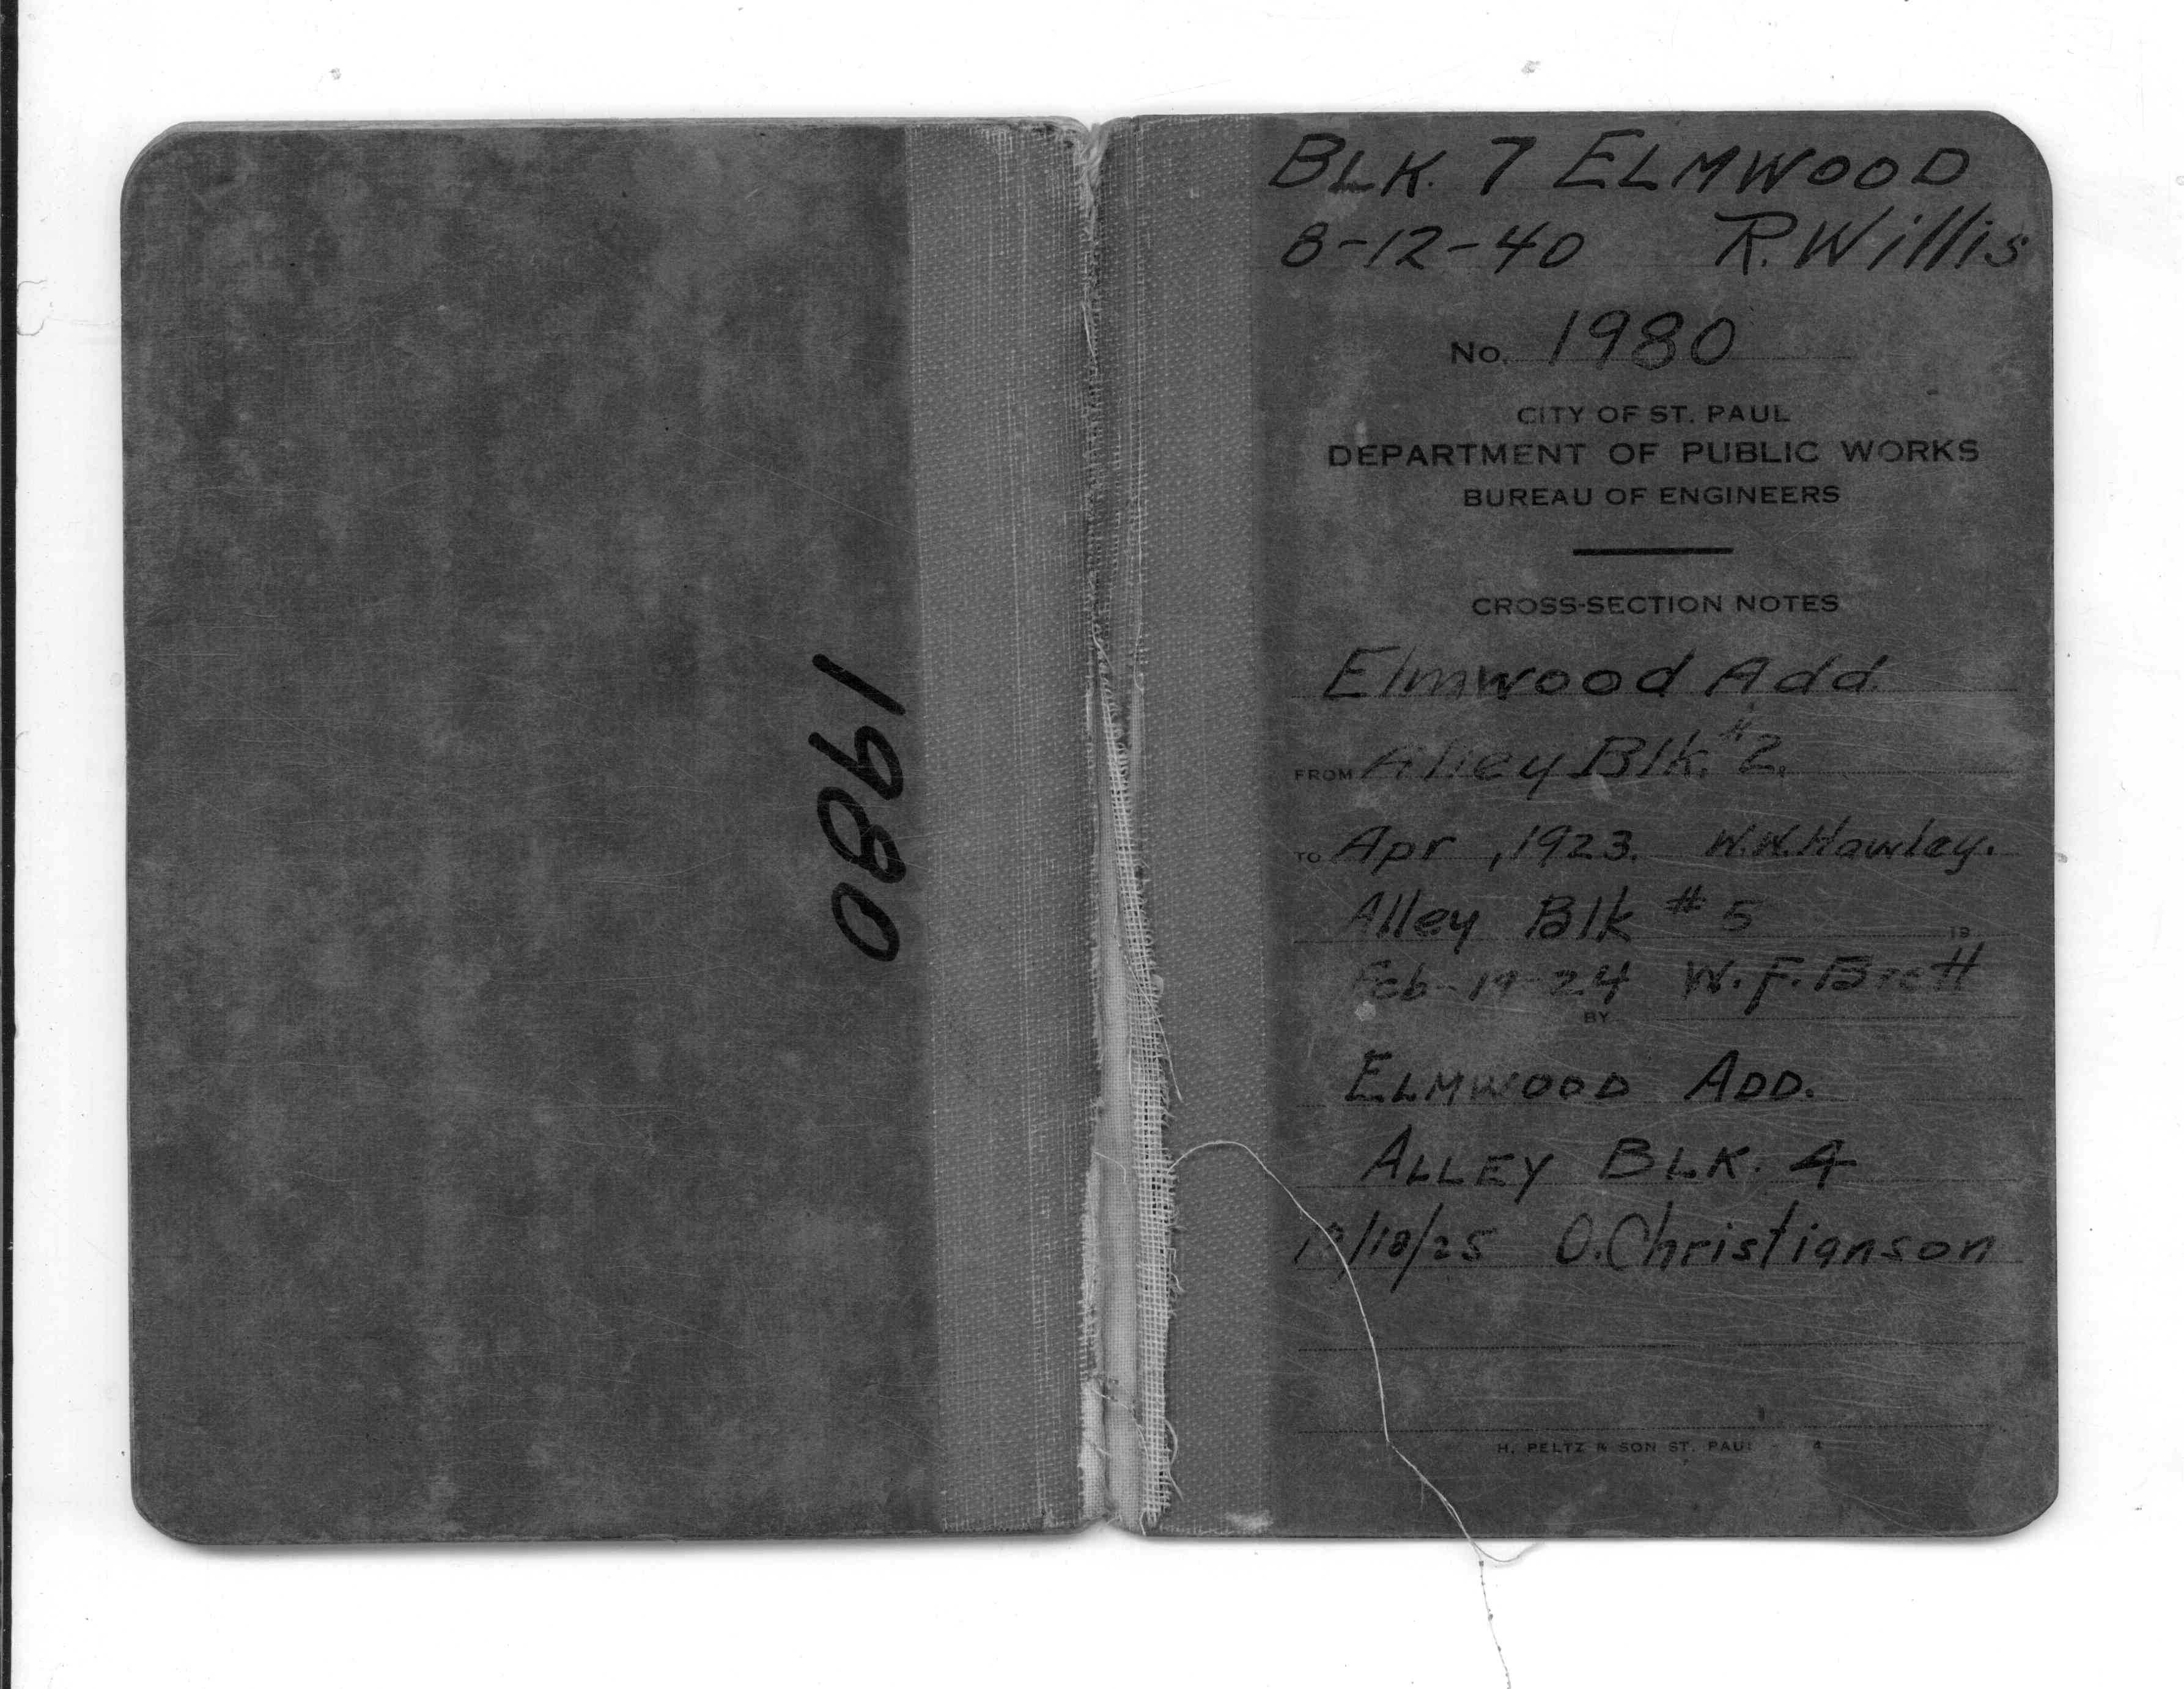 1980
BLK. 7 ELMWOOD
8-12-40 R. Willis
No. 1980
CITY OF ST. PAUL
DEPARTMENT OF PUBLIC WORKS
BUREAU OF ENGINEERS
CROSS-SECTION NOTES
Elmwood Add.
FROM Alley Blk. #2.
TO Apr , 1923. W.W. Hawley.
Alley Blk # 5 19
Feb-19-24 W. F. Brett
BY
ELMWOOD ADD.
ALLEY BLK. 4
O. Christianson
H. PELTZ & SON ST. PAUL